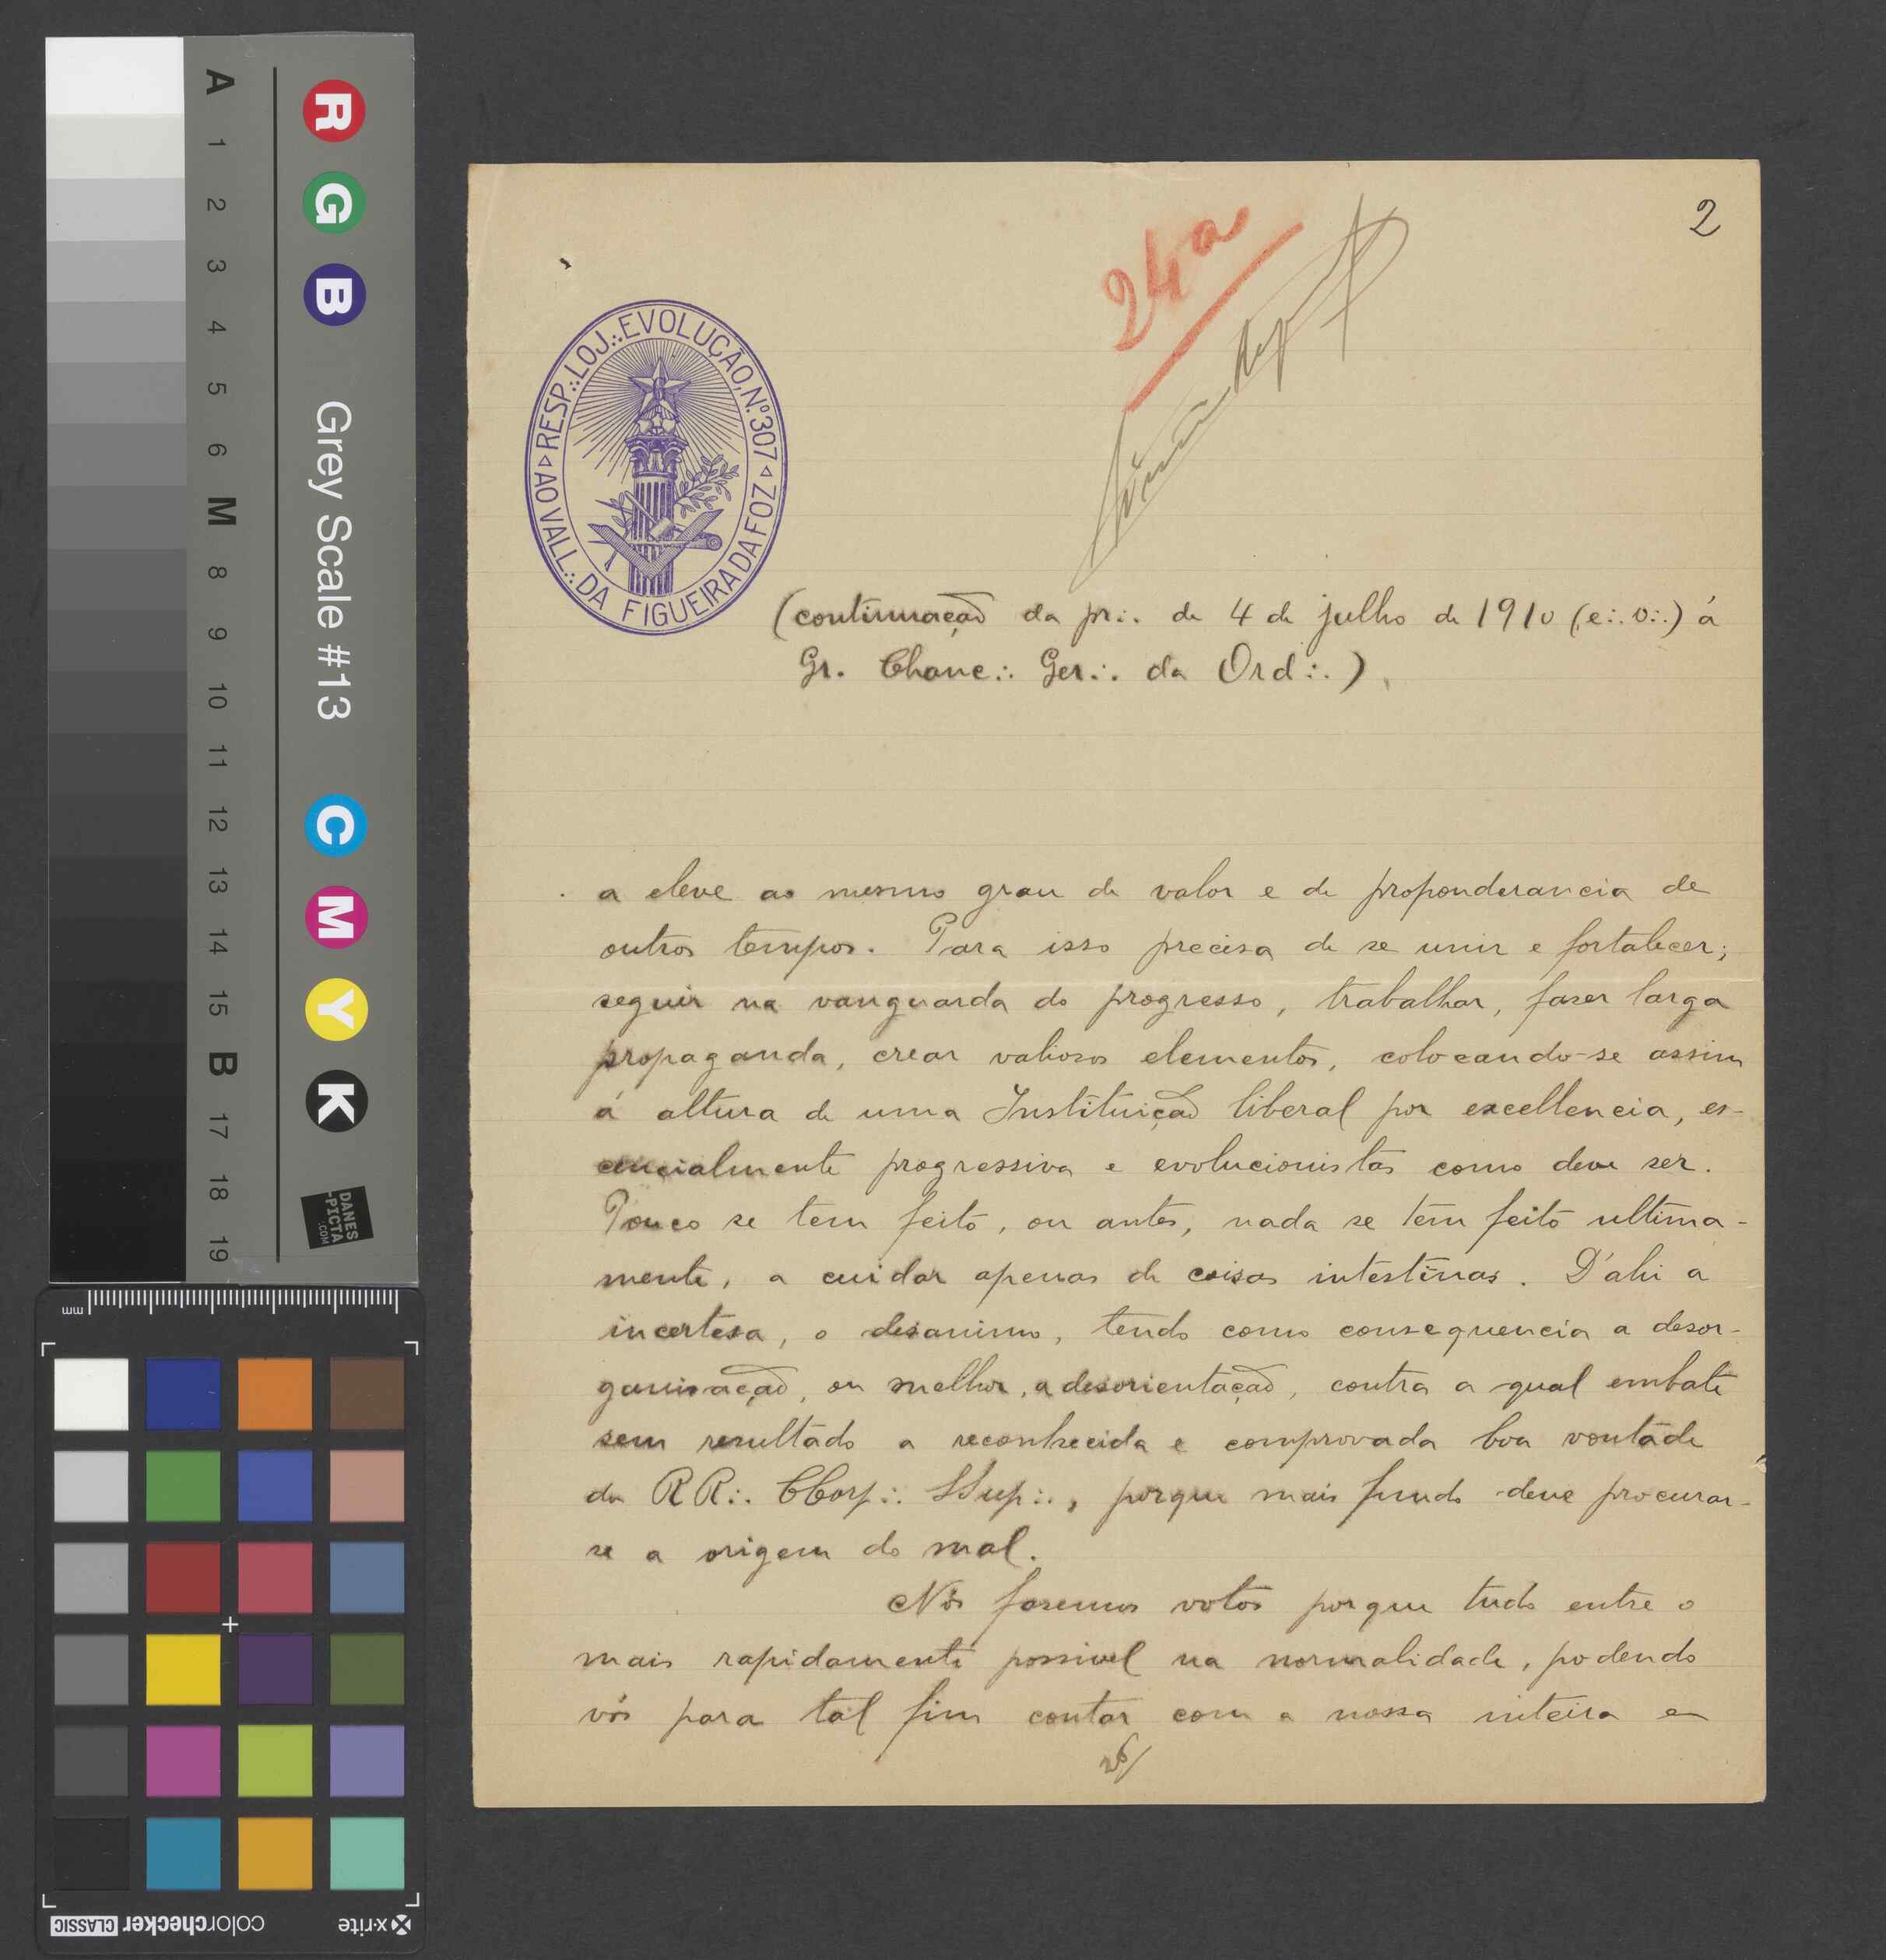 2
24ª
RESP∴ LOJ∴ EVOLUÇÃO, Nº 307
AO VALL∴ DA FIGUEIRA DA FOZ
(continuação da pr∴ de 4 de julho de 1910 (e∴ v∴) á
Gr. Chanc∴ Ger∴ da Ord∴)
a eleve ao mesmo grau de valor e de proponderancia de
outros tempos. Para isso precisa de se unir e fortalecer;
seguir na vanguarda do progresso, trabalhar, fazer larga
propaganda, crear valiosos elementos, colocando-se assim
á altura de uma Instituição liberal por excellencia, es-
cencialmente progressiva e evolucionista como deve ser.
Pouco se tem feito, ou antes, nada se tem feito ultima-
mente, a cuidar apenas de coisas intestinas. D'ahi a
incertesa, o desanimo, tendo como consequencia a desor-
ganisação, ou melhor, a desorientação, contra a qual embate
sem resultado a reconhecida e comprovada boa vontade
do RR∴ CCorp∴ SSup∴, porque mais fundo deve procurar-
se a origem do mal.
Nós fazemos votos porque tudo entre o
mais rapidamente possivel na normalidade, podendo
vós para tal fim contar com a nossa inteira e
A
1
2
3
4
5
6
M
8
9
10
11
12
13
14
15
B
17
18
19
R G B
Grey Scale #13
C M Y K
DANES
-PICTA
.COM
mm
x-rite
colorchecker CLASSIC